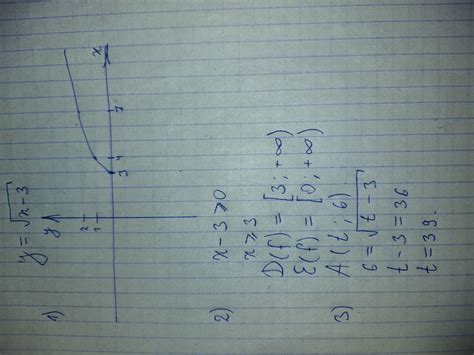 1) y = √(x-3)
y
2
1
3 4 7 x
2) x-3 ≥ 0
x ≥ 3
D(f) = [3; +∞)
E(f) = [0; +∞)
3) A(t; 6)
6 = √(t-3)
t-3 = 36
t = 39.